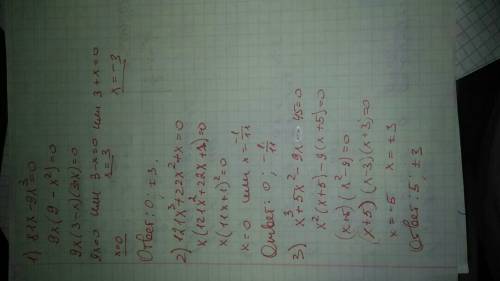 1) 81x-9x³=0
9x(9-x²)=0
9x(3-x)(3+x)=0
9x=0 или 3-x=0 или 3+x=0
x=0 x=3 x=-3
Ответ: 0; ±3.
2) 121x³+22x²+x=0
x(121x²+22x+1)=0
x(11x+1)²=0
x=0 или x=-1/11
Ответ: 0; -1/11
3) x³+5x²-9x-45=0
x²(x+5)-9(x+5)=0
(x+5)(x²-9)=0
(x+5)(x-3)(x+3)=0
x=-5 x=±3
Ответ: 5; ±3